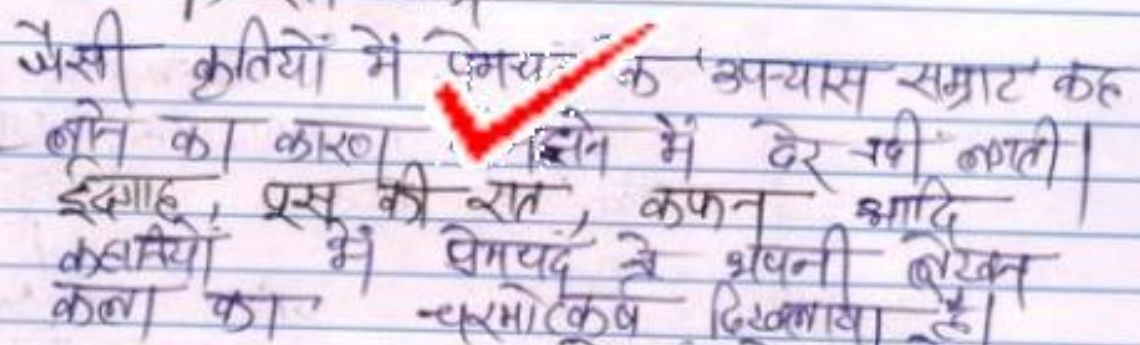 जैसी कृतियों में प्रेमचंद के 'उपन्यास सम्राट' कह
लाने का कारण में देर नहीं लगती।
ईदगाह, पूस की रात, कफन आदि
कहानियों में प्रेमचंद ने अपनी लेखन
कला का चरमोत्कर्ष दिखलाया है।